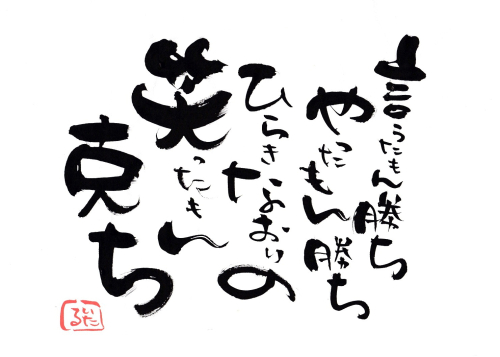 言うたもん勝ち
やったもん勝ち
ひらきなおりの
笑ったもん
克ち